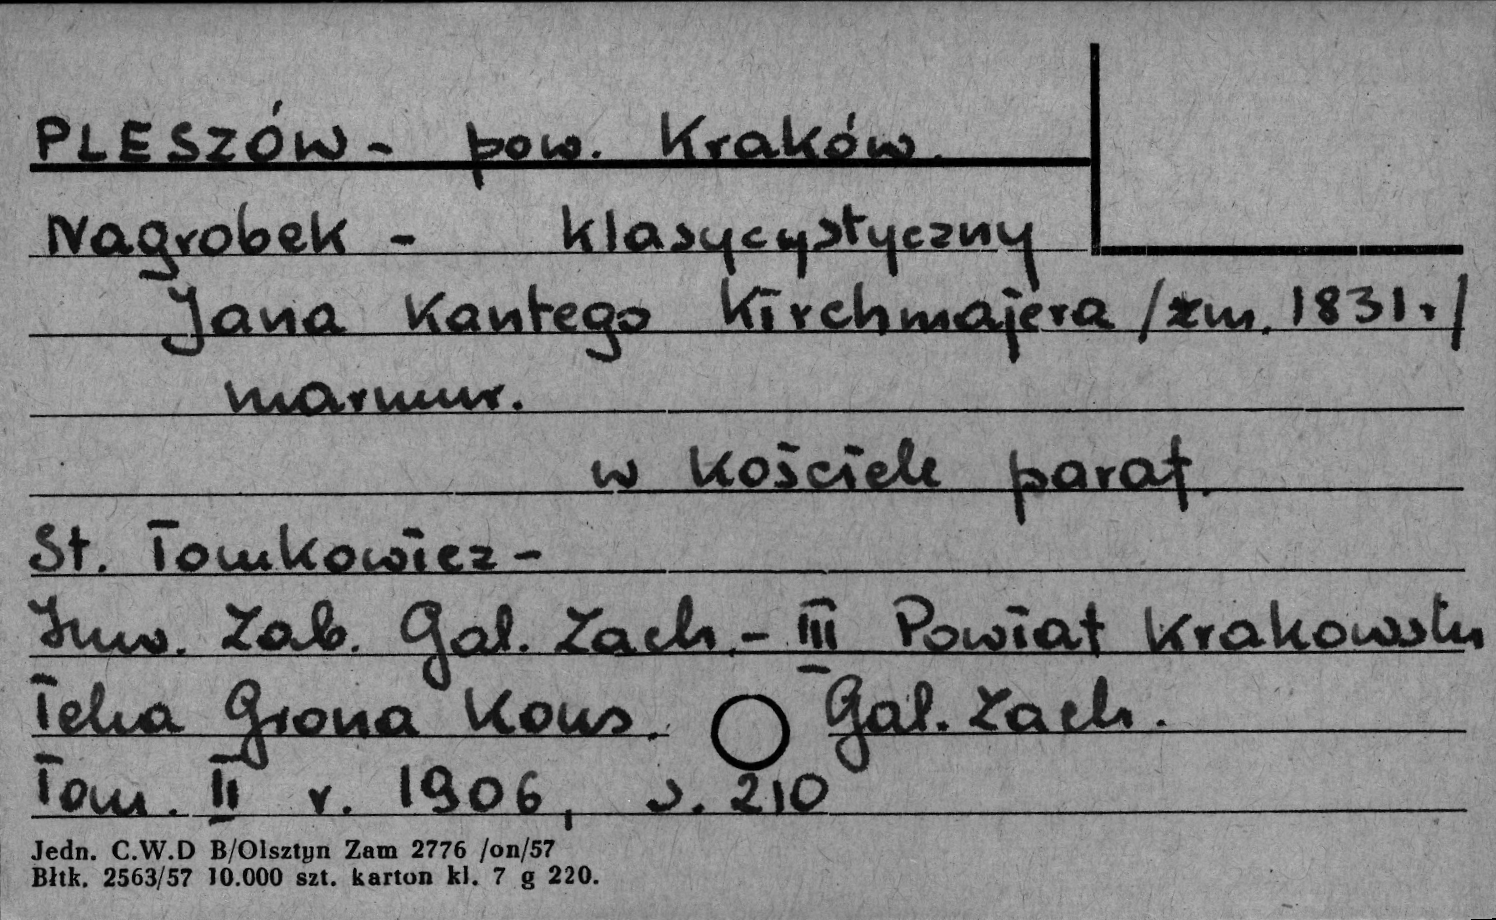 PLESZÓW - pow. Kraków.
Nagrobek - klasycystyczny
Jana Kantego Kirchmajera /zm. 1831.r/
marmur.
w kościele paraf.
St. Tomkowicz -
Inw. Zab. Gal. Zach. - III Powiat Krakowski
Teka Grona Kons. Gal. Zach.
Tom. II r. 1906, s. 210
Jedn. C.W.D B/Olsztyn Zam 2776 /on/57
Błtk. 2563/57 10.000 szt. karton kl. 7 g 220.